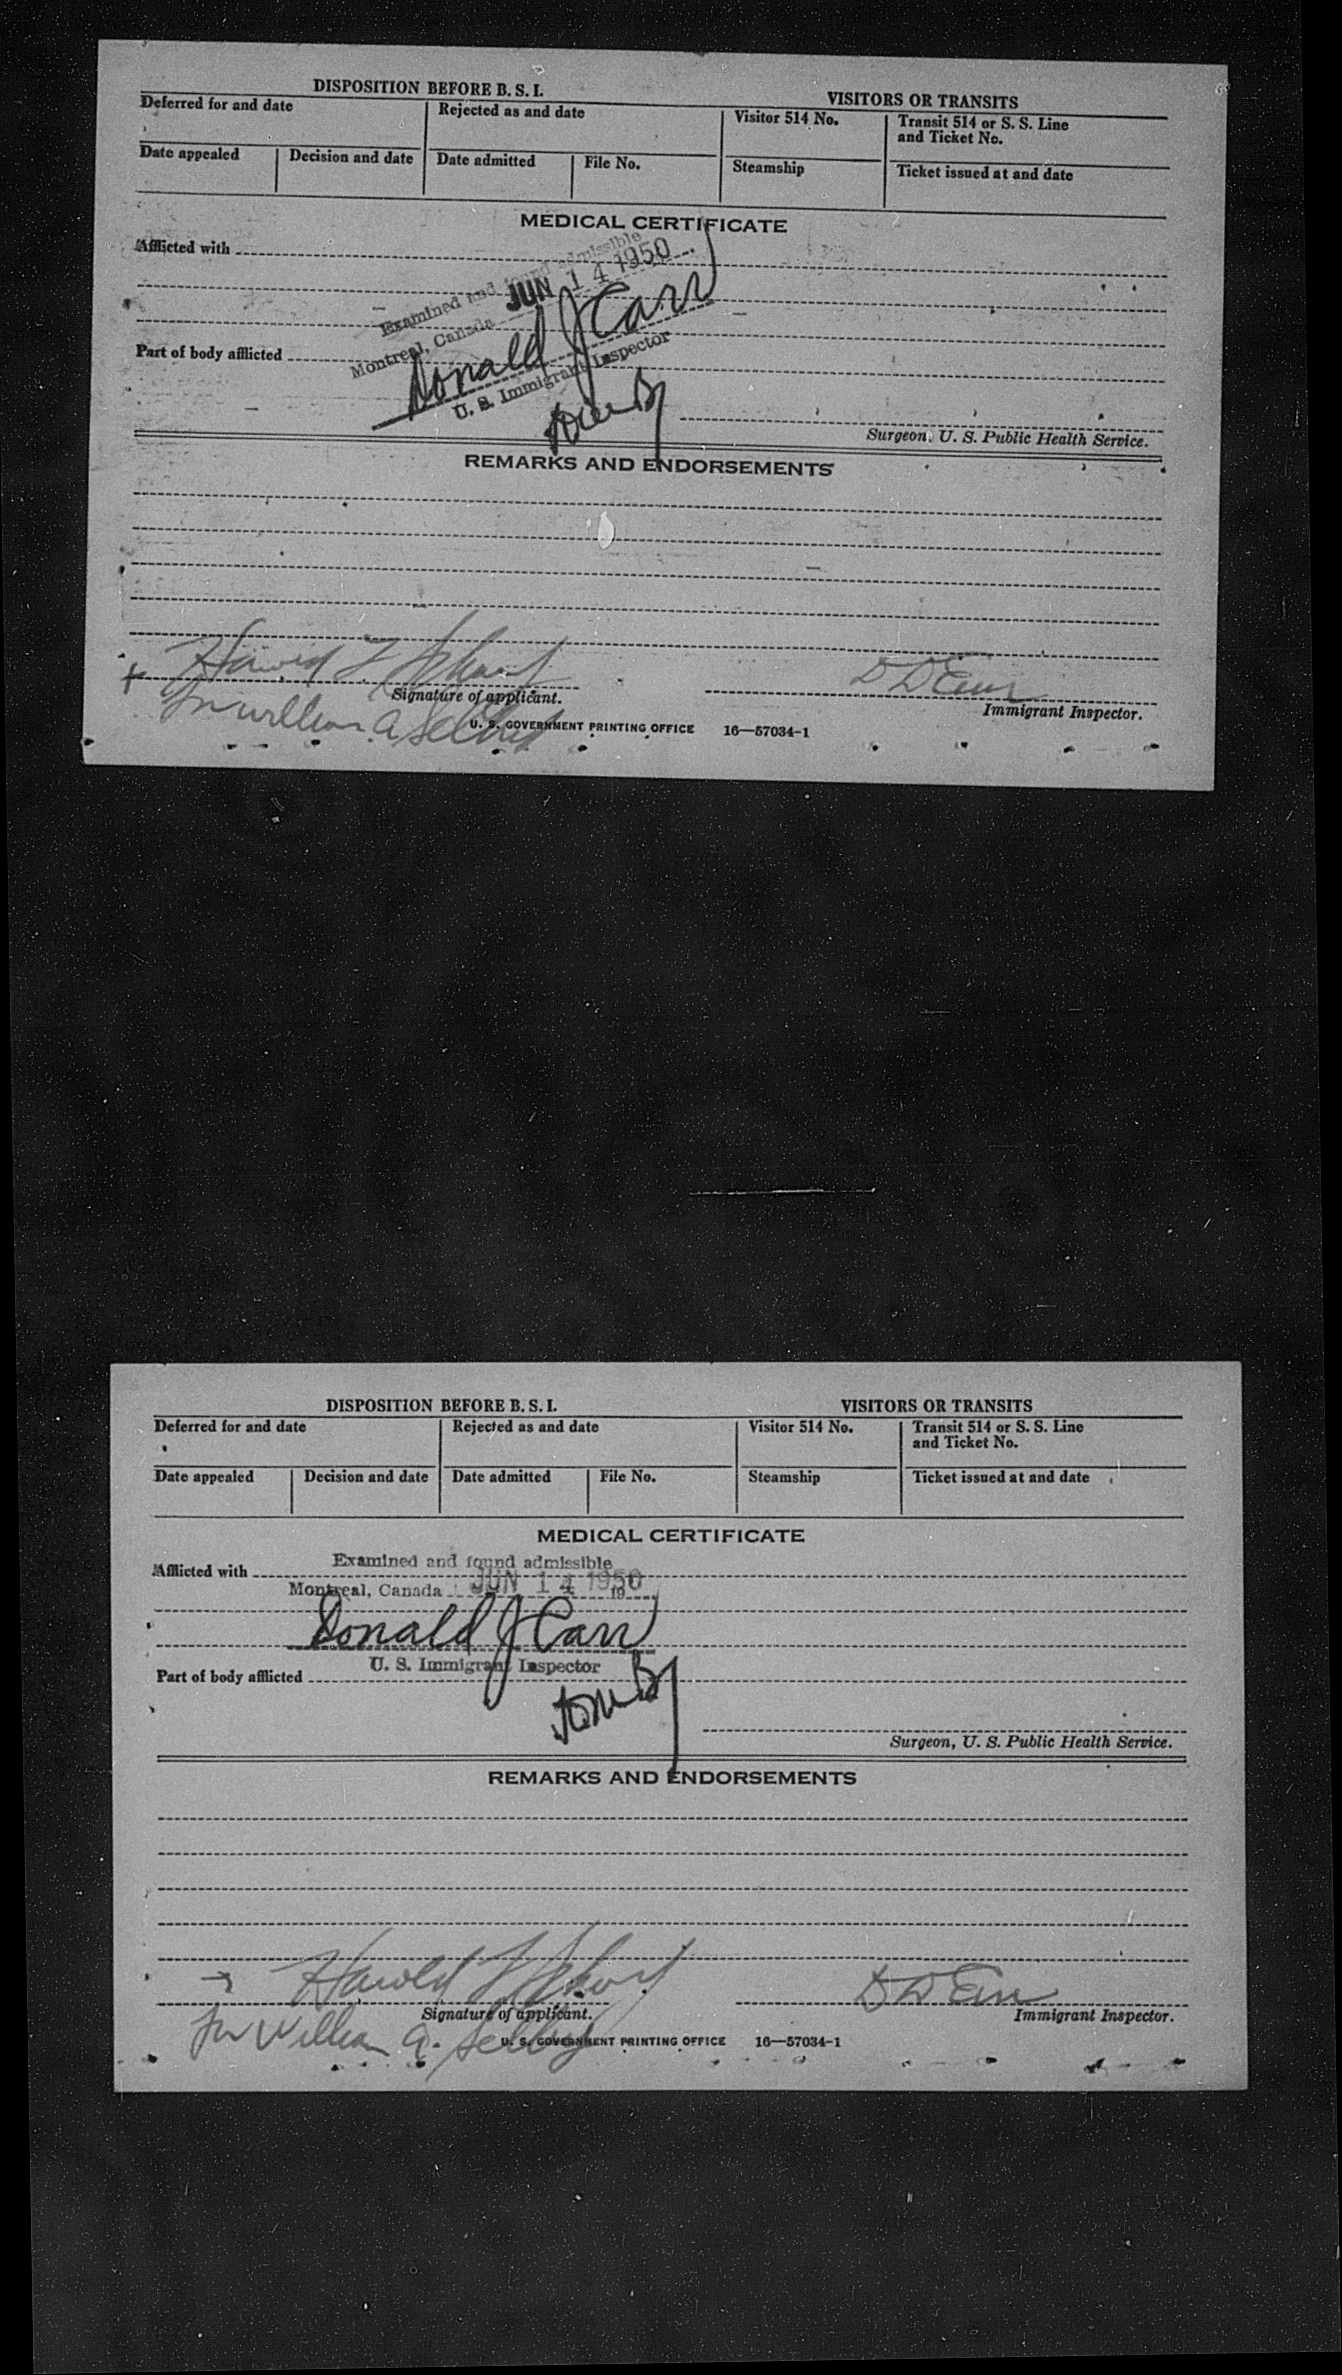 DISPOSITION BEFORE B. S. I.
VISITORS OR TRANSITS
Deferred for and date
Rejected as and date
Visitor 514 No.
Transit 514 or S. S. Line
and Ticket No.
Date appealed
Decision and date
Date admitted
File No.
Steamship
Ticket issued at and date
MEDICAL CERTIFICATE
Afflicted with
Examined and found admissible
Montreal, Canada JUN 14 1950
Donald J Carr
U. S. Immigrant Inspector
Part of body afflicted
Surgeon, U. S. Public Health Service.
REMARKS AND ENDORSEMENTS
Harold
Signature of applicant.
Immigrant Inspector.
William A
U. S. GOVERNMENT PRINTING OFFICE 16—57034-1
DISPOSITION BEFORE B. S. I.
VISITORS OR TRANSITS
Deferred for and date
Rejected as and date
Visitor 514 No.
Transit 514 or S. S. Line
and Ticket No.
Date appealed
Decision and date
Date admitted
File No.
Steamship
Ticket issued at and date
MEDICAL CERTIFICATE
Afflicted with
Examined and found admissible
Montreal, Canada JUN 14 1950
19
Donald J Carr
U. S. Immigrant Inspector
Part of body afflicted
Surgeon, U. S. Public Health Service.
REMARKS AND ENDORSEMENTS
Harold
Signature of applicant.
Immigrant Inspector.
William A.
U. S. GOVERNMENT PRINTING OFFICE 16—57034-1